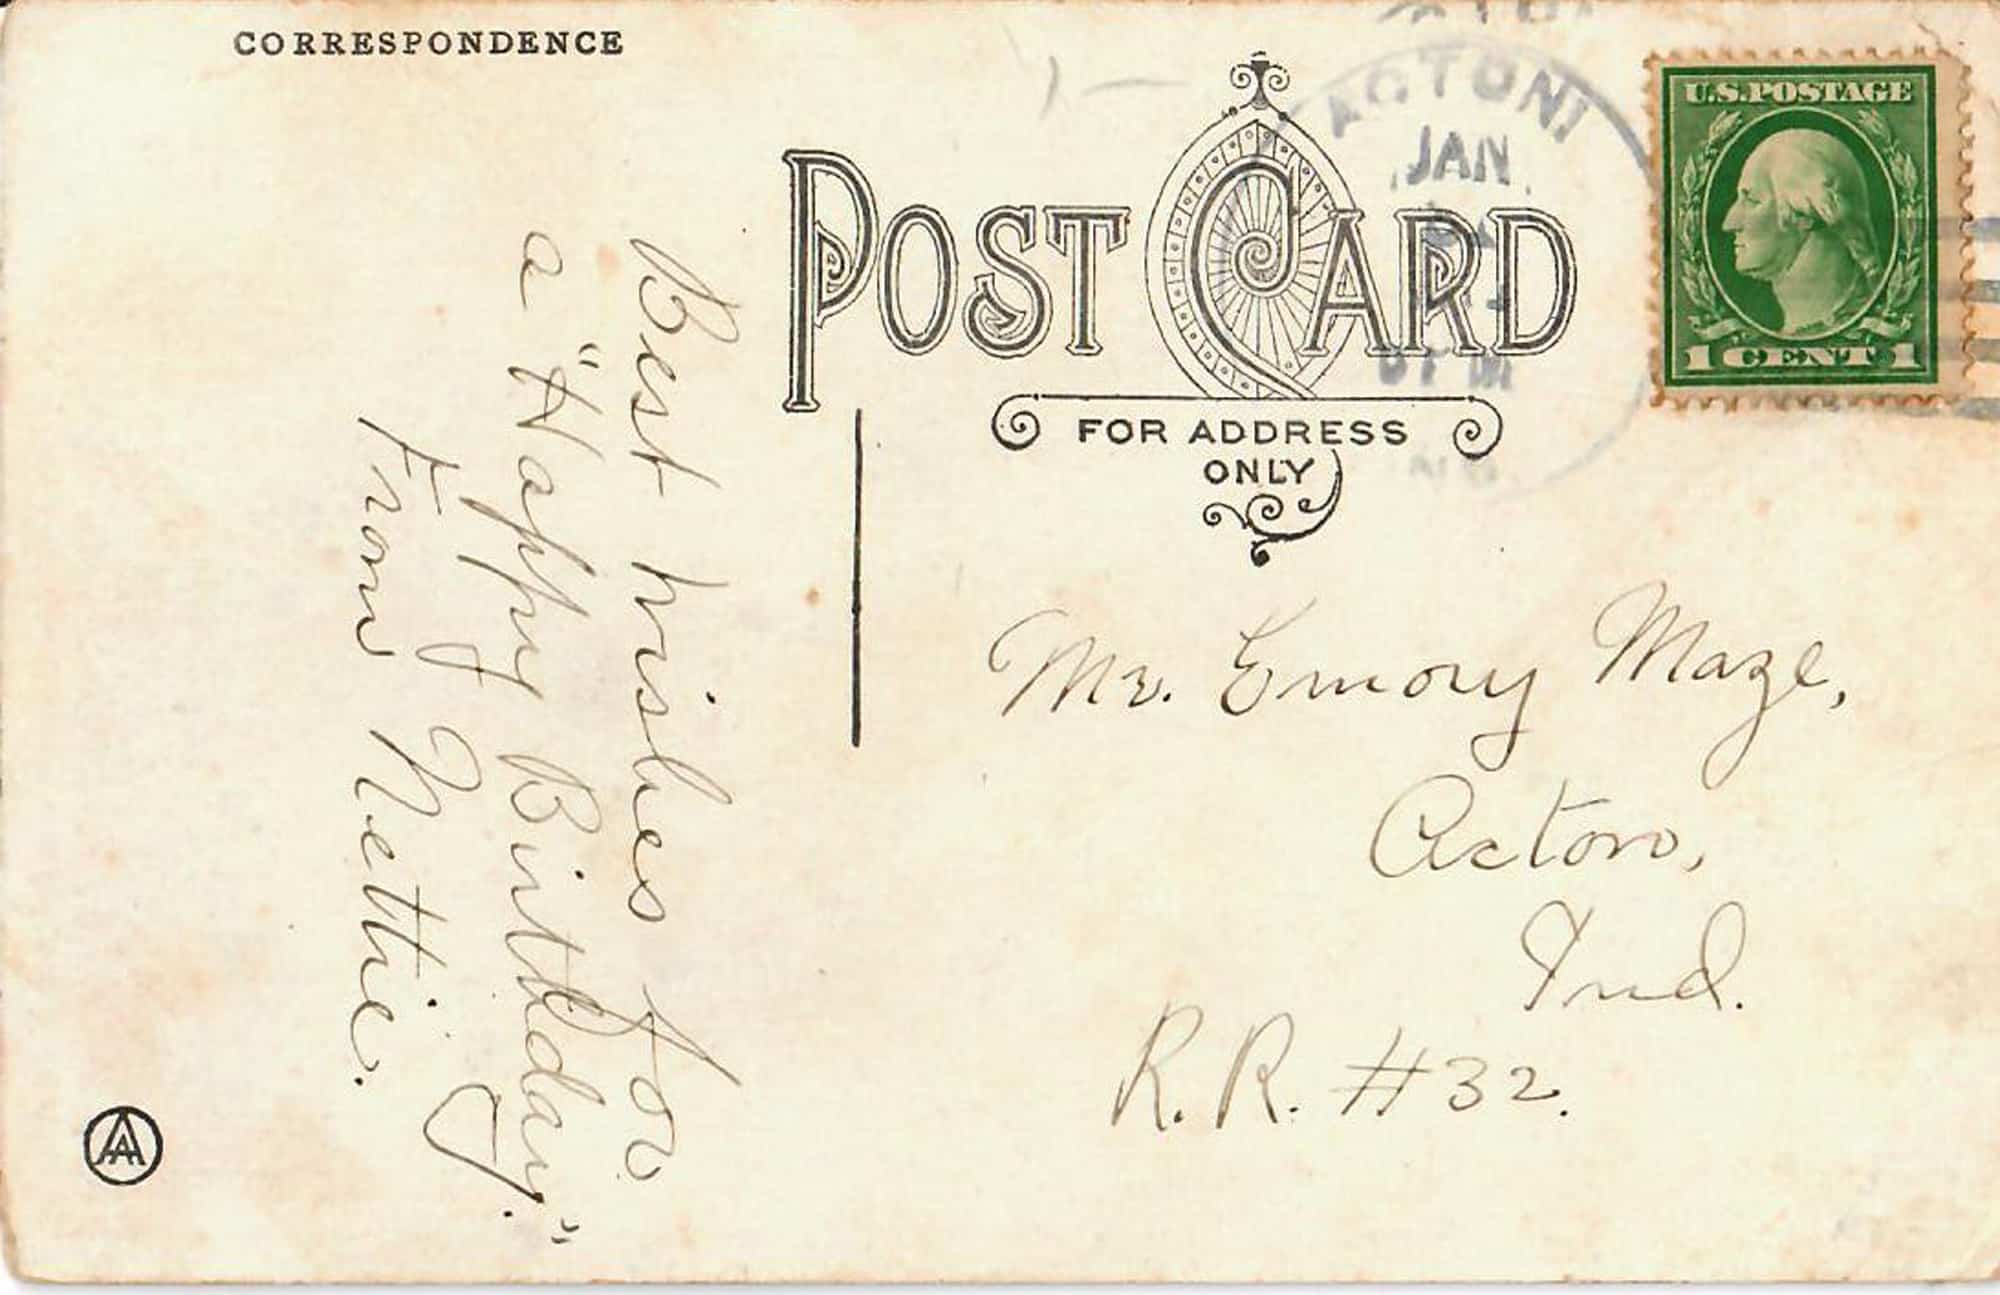 CORRESPONDENCE
Best wishes for
a "Happy Birthday."
From Nettie.
POST CARD
FOR ADDRESS
ONLY
ACTON
JAN
U.S.POSTAGE
1 CENT 1
Mr. Emory Maze,
Acton,
Ind.
R.R. #32.